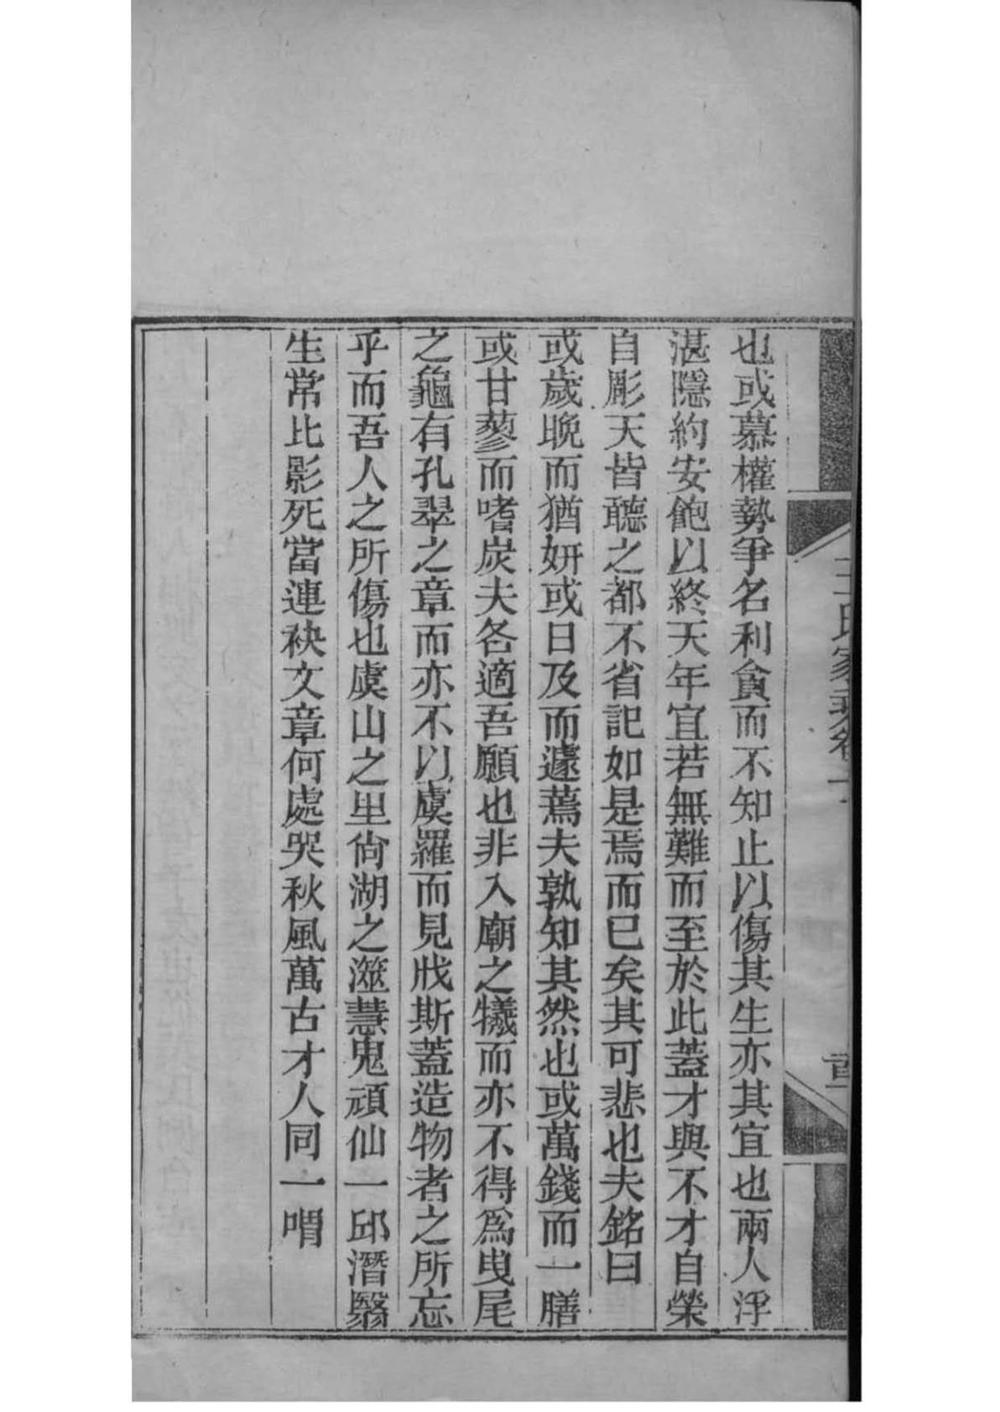 也或慕權勢爭名利貪而不知止以傷其生亦其宜也兩人淨
湛隱約安飽以終天年宜若無難而至於此蓋才與不才自榮
自彫天皆聽之都不省記如是焉而已矣其可悲也夫銘曰
或歲晩而猶妍或日及而遽蔫夫孰知其然也或萬錢而一膳
或甘蓼而嗜炭夫各適吾願也非入廟之犧而亦不得爲曳尾
之龜有孔翠之章而亦不以虞羅而見戕斯蓋造物者之所忘
乎而吾人之所傷也虞山之里尙湖之澨慧鬼頑仙一邱潛翳
生常比影死當連袂文章何處哭秋風萬古才人同一喟